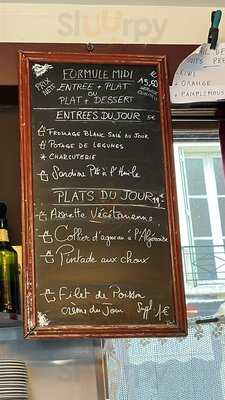 Slurpy
FORMULE MIDI
PRIX NETS
ENTRÉE + PLAT
OU
PLAT + DESSERT
15,50
€
ENTRÉES DU JOUR 5€
FROMAGE BLANC SALÉ AU JOUR
POTAGE DE LEGUMES
* CHARCUTERIE
Sardine Pté à l'Huile
PLATS DU JOUR
Assiette Végétarienne
Collier d'agneau à l'
Pintade aux choux
Filet de Poisson
crème du Jour Suppl 1€
KIWI
+ ORANGE
+ PAMPLEMOUSSE